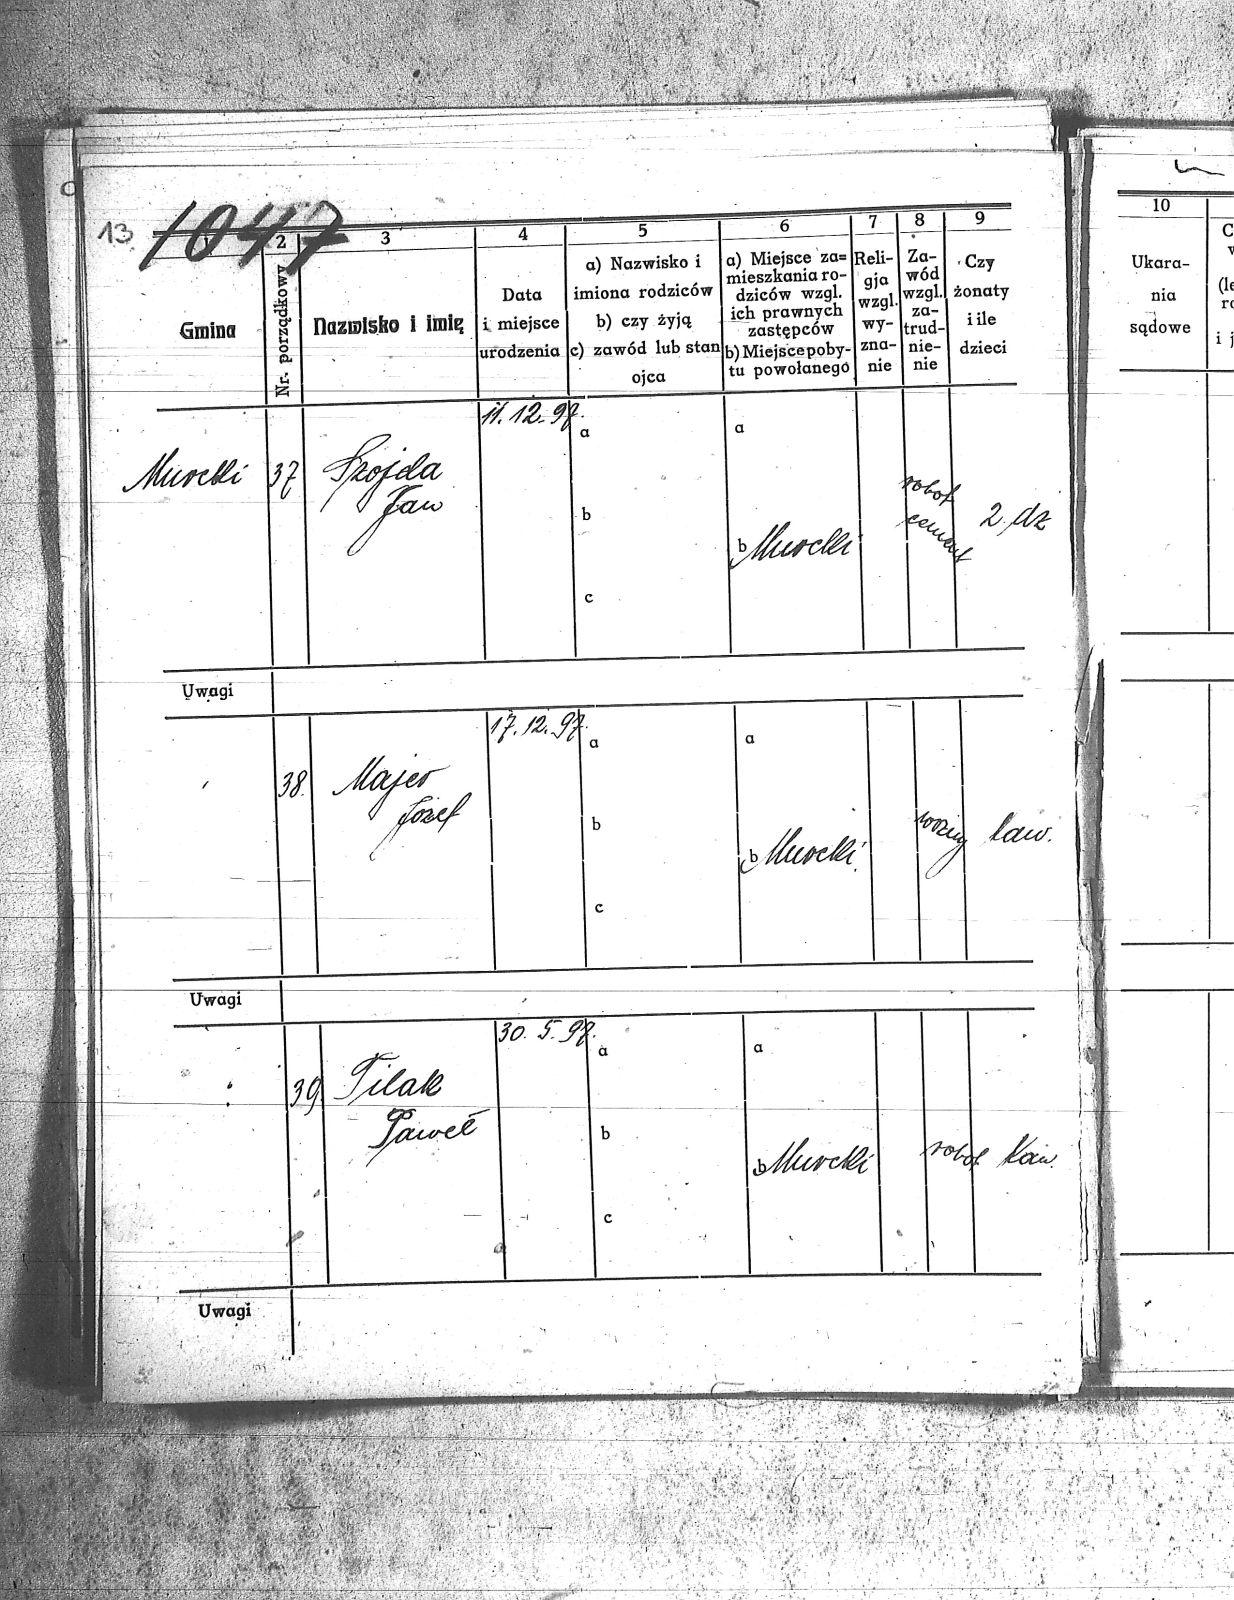 13
1047
2
3
4
5
6
7
8
9
Gmina
Nr. porządkowy
Nazwisko i imię
Data
i miejsce
urodzenia
a) Nazwisko i
imiona rodziców
b) czy żyją
c) zawód lub stan
ojca
a) Miejsce za=
mieszkania ro-
dziców wzgl.
ich prawnych
zastępców
b) Miejsce poby-
tu powołanego
Reli-
gja
wzgl.
wy-
zna-
nie
Za-
wód
wzgl.
za-
trud-
nie-
nie
Czy
żonaty
i ile
dzieci
10
Ukara-
nia
sądowe
Murcki
37
Szojda
Jan
11.12.97.
a
b
c
a
b Murcki
robot
cement
2 dz
Uwagi
38.
Majer
Józef
17.12.97.
a
b
c
a
b Murcki
woźny
kaw.
Uwagi
39
Pilak
Paweł
30.5.97.
a
b
c
a
b Murcki
robot
kaw.
Uwagi